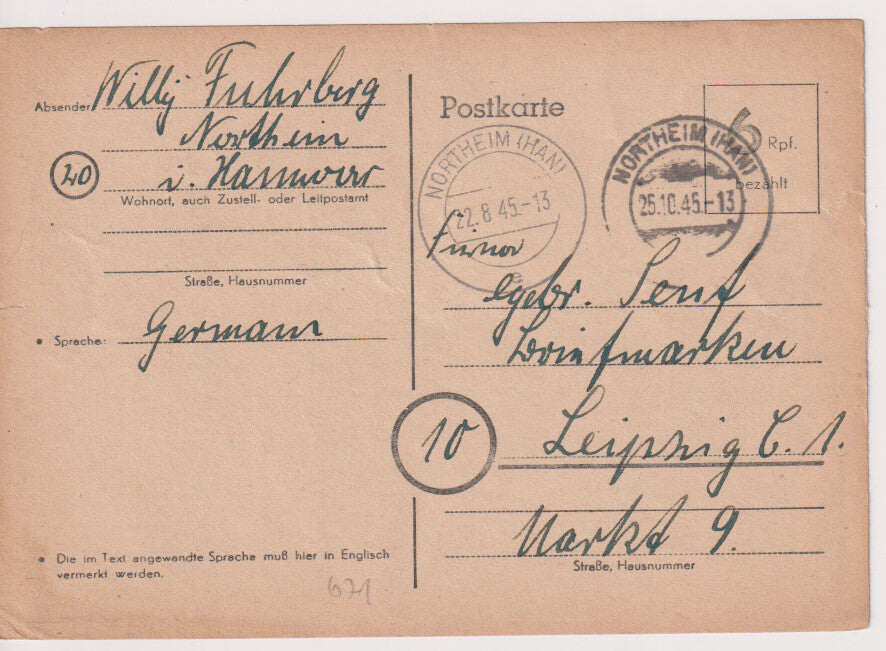 Absender
Willy Fuhrberg
Northeim
20
i. Hannover
Wohnort, auch Zustell- oder Leitpostamt
Straße, Hausnummer
• Sprache:
German
• Die im Text angewandte Sprache muß hier in Englisch
vermerkt werden.
671
Postkarte
6 Rpf.
bezahlt
NORTHEIM (HAN)
22.8.45.-13
NORTHEIM (HAN)
25.10.45.-13
Firma
Gebr. Senf
Briefmarken
10
Leipzig C. 1.
Markt 9.
Straße, Hausnummer